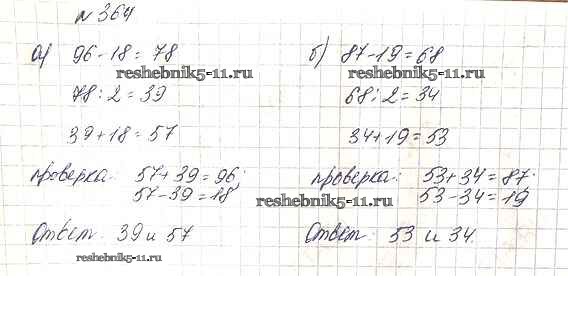 № 364
а) 96 - 18 = 78
reshebnik5-11.ru
78 : 2 = 39
39 + 18 = 57
проверка: 57 + 39 = 96;
57 - 39 = 18
Ответ: 39 и 57
reshebnik5-11.ru
б) 87 - 19 = 68
reshebnik5-11.ru
68 : 2 = 34
34 + 19 = 53
проверка: 53 + 34 = 87;
53 - 34 = 19
reshebnik5-11.ru
Ответ: 53 и 34.